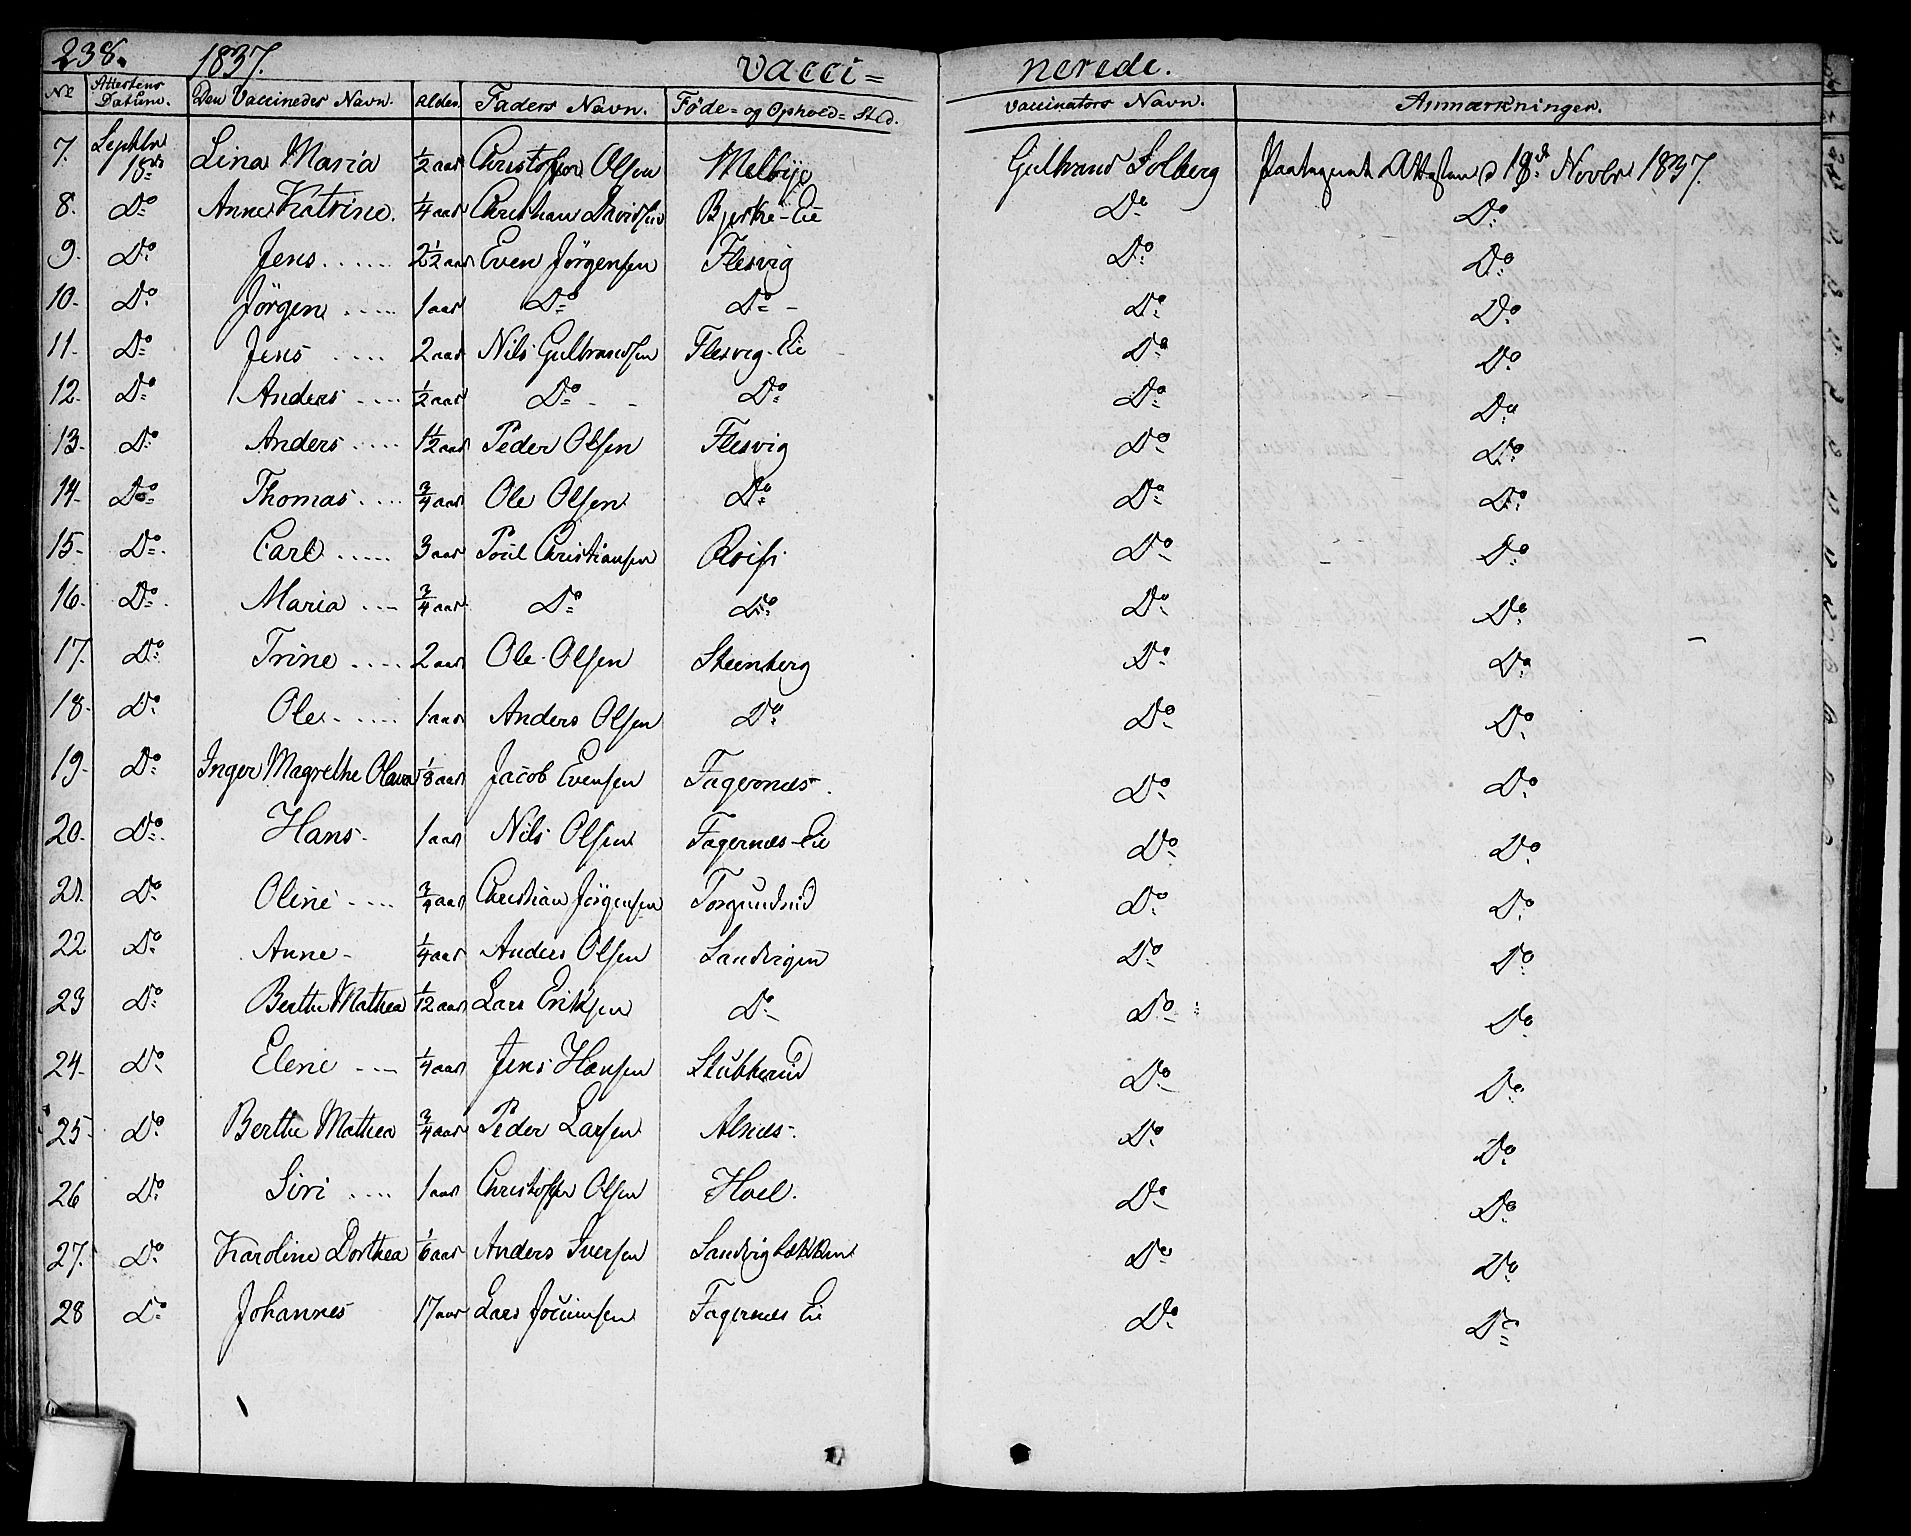 238. 1837. Vacci= nerede.
No Attestens Datum. Den Vaccinedes Navn. Alder. Faders Navn. Føde= og Ophold=Sted. Vaccinators Navn. Anmærkninger.
7. Septbr 18de Lina Maria 1/2 aar Christoffer Olsen Melbye Gulbrand Solberg Attesten d 18de Novbr 1837.
8. Do Anne Katrine. 1/4 aar Christian Davidsen Bjerke-Eie Do Do
9. Do Jens..... 2 1/2 aar Even Jörgensen Flesvig Do Do
10. Do Jörgen..... 1 aar Do Do - Do Do
11. Do Jens.... 2 aar Nils Gulbrandsen Flesvig-Eie Do Do
12. Do Anders.... 1/2 aar Do - - Do Do Do
13. Do Anders.... 1 1/2 aar Peder Olsen Flesvig Do Do
14. Do Thomas.... 3/4 aar Ole Olsen Do Do Do
15. Do Carl..... 3 aar Poul Christiansen Do Do
16. Do Maria... 3/4 aar Do Do Do Do
17. Do Trine.... 2 aar Ole Olsen Steenberg Do Do
18. Do Ole..... 1 aar Anders Olsen Do Do Do
19. Do Inger Magrethe Olava 1/8 aar Jacob Evensen Fagernæs. Do Do
20. Do Hans- 1 aar Nils Olsen Fagernæs-Eie Do Do
21. Do Oline.... 3/4 aar Christian Jörgensen Do Do
22 Do Anne- 1/4 aar Anders Olsen Sandvigen Do Do
23 Do Berthe Mathea 1/12 aar Lars Eriksen Do Do Do
24. Do Elene... 1/4 aar Jens Hansen Stubberud Do Do
25. Do Berthe Mathea 3/4 aar Peder Larsen Alnæs. Do Do
26 Do Siri.... 1 aar Christoffer Olsen Hoel. Do Do
27. Do Karoline Dorthea 1/6 aar Anders Iversen Sandvigbækken Do Do
28 Do Johannes 17 aar Lars Jocumsen Fagernæs Eie Do Do